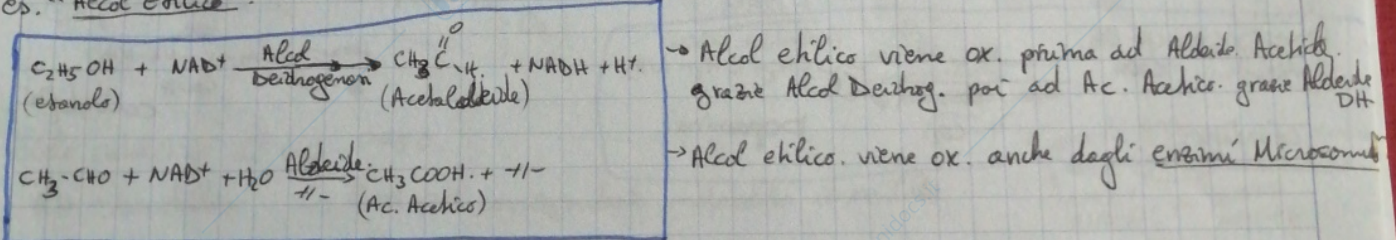 es. "Alcol etilico
C2H5OH + NAD+ Alcol Deidrogenasi → CH3C=O-H + NADH + H+.
(etanolo) (Acetaldeide)
CH3-CHO + NAD+ + H2O Aldeide -//- → CH3COOH. + -//-
(Ac. Acetico)
→ Alcol etilico viene ox. prima ad Aldeide Acetica.
grazie Alcol Deidrog. poi ad Ac. Acetico. grazie Aldeide
DH
→ Alcol etilico. viene ox. anche dagli enzimi Microsomali